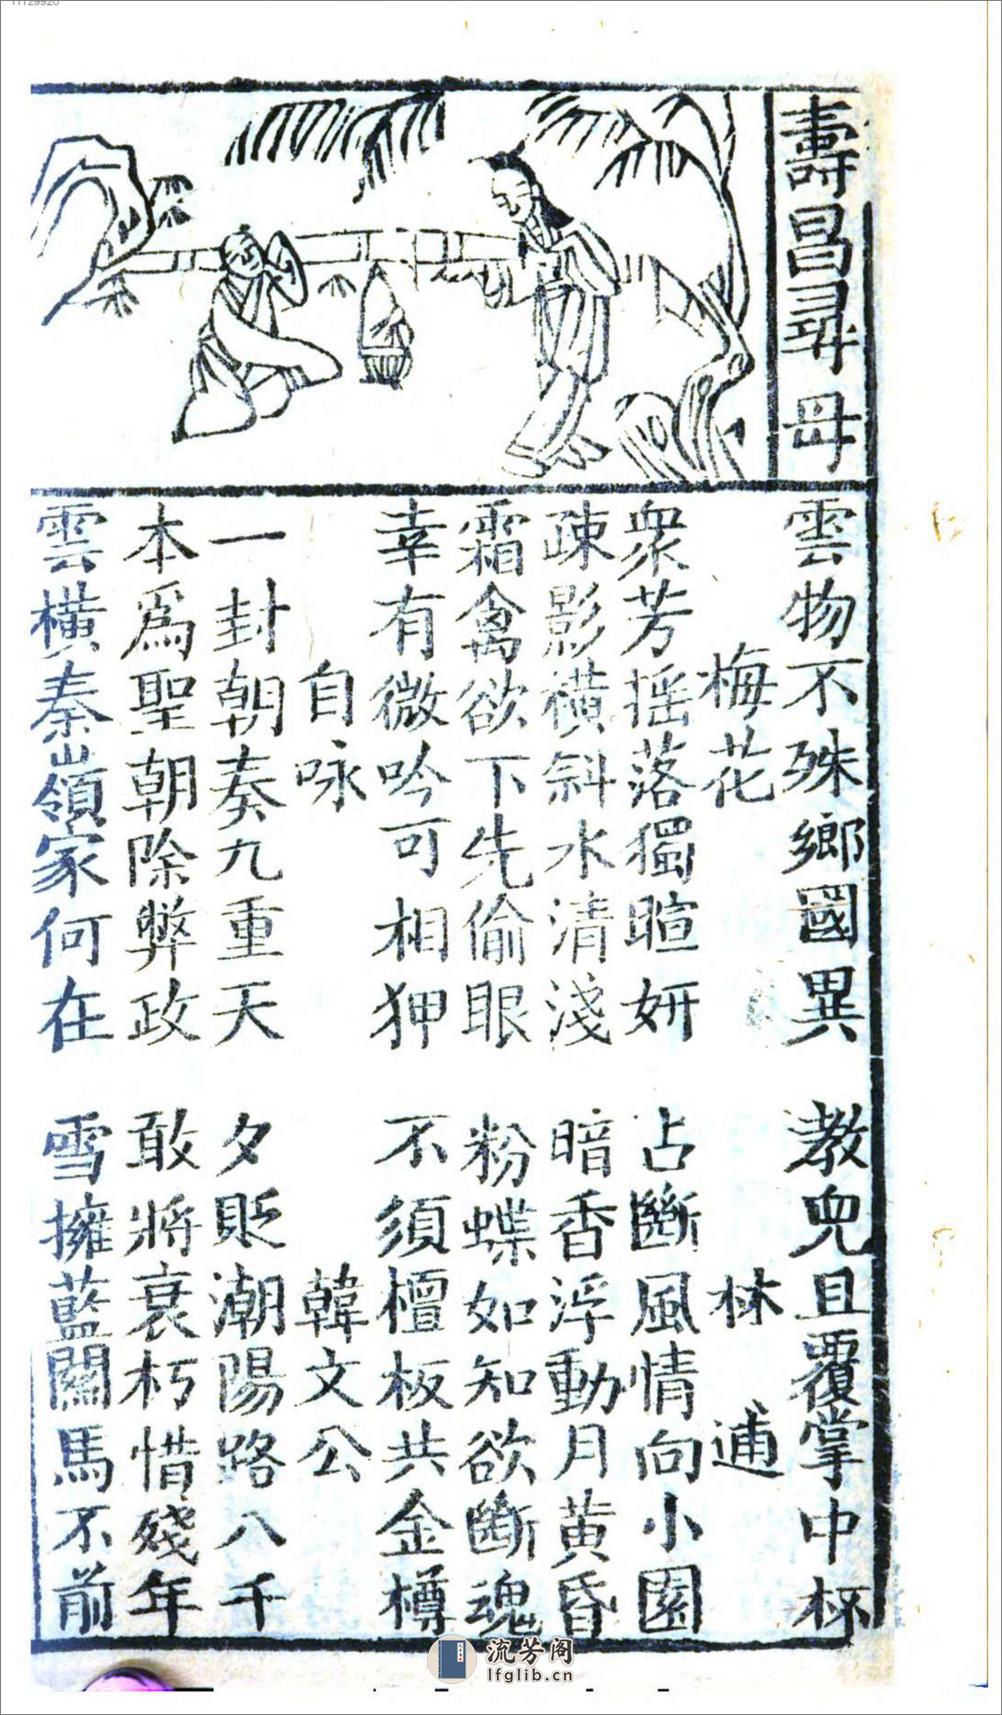 壽昌尋母
雲物不殊鄉國異　教兒且覆掌中杯
梅花　林逋
衆芳搖落獨暄妍　占斷風情向小園
疎影橫斜水清淺　暗香浮動月黃昏
霜禽欲下先偷眼　粉蝶如知欲斷魂
幸有微吟可相狎　不須檀板共金樽
自咏　韓文公
一封朝奏九重天　夕貶潮陽路八千
本爲聖朝除弊政　敢將衰朽惜殘年
雲橫秦嶺家何在　雪擁藍關馬不前
流芳阁
lfglib.cn